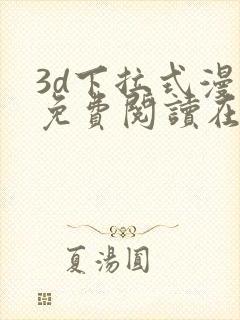 3d下拉式漫
免費閱讀在
夏湯圓